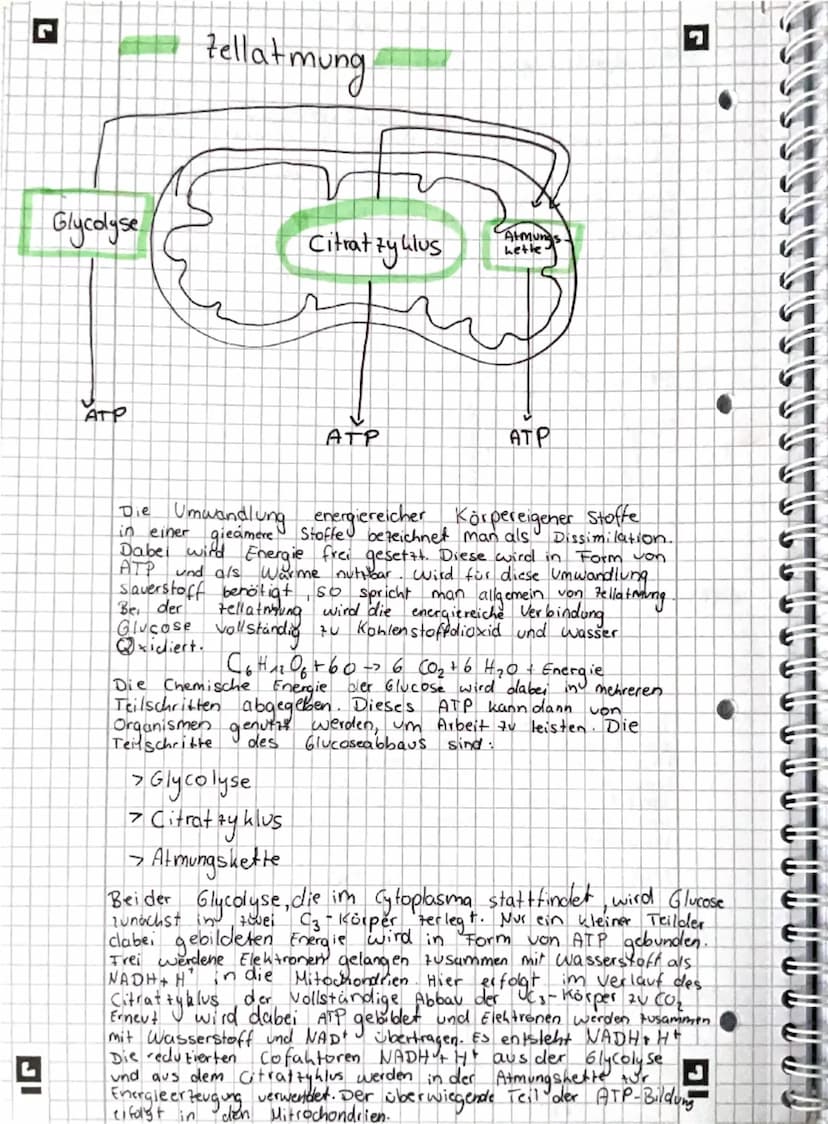 Zellatmung
Glycolyse
Citratzyklus
Atmungs-
kette
ATP
ATP
ATP
Die Umwandlung energiereicher Körpereigener Stoffe
in einer gieämere Stoffe bezeichnet man als Dissimilation.
Dabei wird Energie frei gesetzt. Diese wird in Form von
ATP und als Wärme nutzbar. Wird für diese Umwandlung
Sauerstoff benötigt, so spricht man allgemein von Zellatmung.
Bei der Zellatmung wird die energiereiche Verbindung
Glucose vollständig zu Kohlenstoffdioxid und Wasser
Oxidiert.
C₆H₁₂O₆ + 6O -> 6 CO₂ + 6 H₂O + Energie
Die Chemische Energie der Glucose wird dabei in mehreren
Teilschritten abgegeben. Dieses ATP kann dann von
Organismen genutzt werden, um Arbeit zu leisten. Die
Teilschritte des Glucoseabbaus sind:
> Glycolyse
> Citratzyklus
> Atmungskette
Bei der Glycolyse, die im Cytoplasma stattfindet, wird Glucose
zunächst in zwei C₃-Körper zerlegt. Nur ein kleiner Teil der
dabei gebildeten Energie wird in Form von ATP gebunden.
Frei werdene Elektronen gelangen zusammen mit Wasserstoff als
NADH + H⁺ in die Mitochondrien. Hier erfolgt im Verlauf des
Citratzyklus der Vollständige Abbau der C₃-Körper zu CO₂
Erneut wird dabei ATP gebildet und Elektronen werden zusammen
mit Wasserstoff und NAD⁺ übertragen. Es entsteht NADH + H⁺
Die reduzierten Cofaktoren NADH + H⁺ aus der Glycolyse
und aus dem Citratzyklus werden in der Atmungskette zur
Energieerzeugung verwendet. Der überwiegende Teil der ATP-Bildung
erfolgt in den Mitrochondrien.